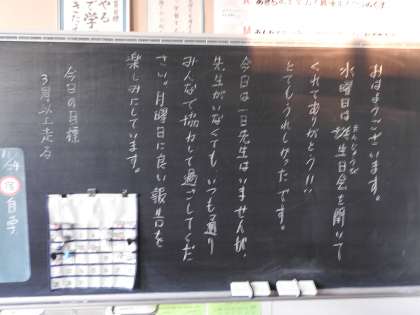 おはようございます。
水曜日は誕生日会を開いて
たんじょうび
くれてありがとう!!
とてもうれしかったです。
今日は一日先生はいませんが、
先生がいなくても、いつも通り
みんなで協力して過ごしてくだ
さい。月曜日に良い報告を
楽しみにしています。
今日の目標
3周以上走る
11/24